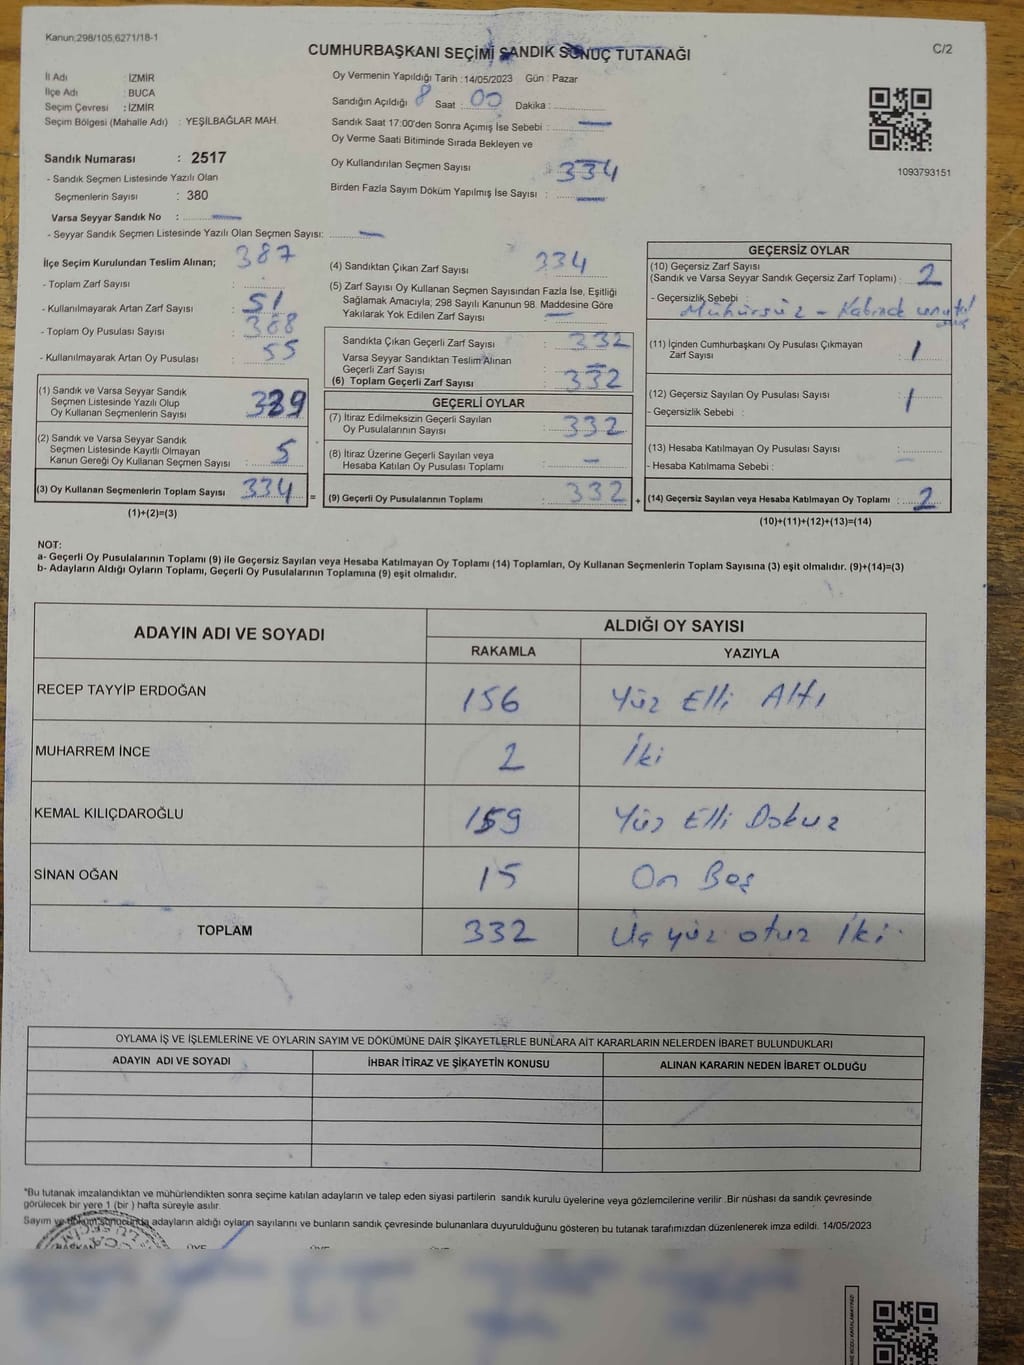 Kanun;298/105,6271/18-1
C/2
CUMHURBAŞKANI SEÇİMİ SANDIK SONUÇ TUTANAĞI
İl Adı : İZMİR
İlçe Adı : BUCA
Seçim Çevresi : İZMİR
Seçim Bölgesi (Mahalle Adı) : YEŞİLBAĞLAR MAH.
Sandık Numarası : 2517
- Sandık Seçmen Listesinde Yazılı Olan
Seçmenlerin Sayısı : 380
Varsa Seyyar Sandık No : —
- Seyyar Sandık Seçmen Listesinde Yazılı Olan Seçmen Sayısı: —
Oy Vermenin Yapıldığı Tarih : 14/05/2023 Gün : Pazar
Sandığın Açıldığı 8 Saat : 00 Dakika :
Sandık Saat 17:00'den Sonra Açımış İse Sebebi : —
Oy Verme Saati Bitiminde Sırada Bekleyen ve
Oy Kullandırılan Seçmen Sayısı : 334
Birden Fazla Sayım Döküm Yapılmış İse Sayısı : —
1093793151
İlçe Seçim Kurulundan Teslim Alınan; 387
- Toplam Zarf Sayısı :
- Kullanılmayarak Artan Zarf Sayısı : 51
- Toplam Oy Pusulası Sayısı : 388
- Kullanılmayarak Artan Oy Pusulası : 55
(1) Sandık ve Varsa Seyyar Sandık
Seçmen Listesinde Yazılı Olup
Oy Kullanan Seçmenlerin Sayısı : 329
(2) Sandık ve Varsa Seyyar Sandık
Seçmen Listesinde Kayıtlı Olmayan
Kanun Gereği Oy Kullanan Seçmen Sayısı : 5
(3) Oy Kullanan Seçmenlerin Toplam Sayısı : 334 =
(1)+(2)=(3)
(4) Sandıktan Çıkan Zarf Sayısı : 334
(5) Zarf Sayısı Oy Kullanan Seçmen Sayısından Fazla İse, Eşitliği
Sağlamak Amacıyla; 298 Sayılı Kanunun 98. Maddesine Göre
Yakılarak Yok Edilen Zarf Sayısı : —
Sandıkta Çıkan Geçerli Zarf Sayısı : 332
Varsa Seyyar Sandıktan Teslim Alınan
Geçerli Zarf Sayısı : —
(6) Toplam Geçerli Zarf Sayısı : 332
GEÇERLİ OYLAR
(7) İtiraz Edilmeksizin Geçerli Sayılan
Oy Pusulalarının Sayısı : 332
(8) İtiraz Üzerine Geçerli Sayılan veya
Hesaba Katılan Oy Pusulası Toplamı : —
(9) Geçerli Oy Pusulalarının Toplamı : 332 +
GEÇERSİZ OYLAR
(10) Geçersiz Zarf Sayısı
(Sandık ve Varsa Seyyar Sandık Geçersiz Zarf Toplamı) : 2
- Geçersizlik Sebebi : Mühürsüz - Kabinde
(11) İçinden Cumhurbaşkanı Oy Pusulası Çıkmayan
Zarf Sayısı : 1
(12) Geçersiz Sayılan Oy Pusulası Sayısı : 1
- Geçersizlik Sebebi :
(13) Hesaba Katılmayan Oy Pusulası Sayısı : —
- Hesaba Katılmama Sebebi :
(14) Geçersiz Sayılan veya Hesaba Katılmayan Oy Toplamı : 2
(10)+(11)+(12)+(13)=(14)
NOT:
a- Geçerli Oy Pusulalarının Toplamı (9) ile Geçersiz Sayılan veya Hesaba Katılmayan Oy Toplamı (14) Toplamları, Oy Kullanan Seçmenlerin Toplam Sayısına (3) eşit olmalıdır. (9)+(14)=(3)
b- Adayların Aldığı Oyların Toplamı, Geçerli Oy Pusulalarının Toplamına (9) eşit olmalıdır.
ADAYIN ADI VE SOYADI
ALDIĞI OY SAYISI
RAKAMLA YAZIYLA
RECEP TAYYİP ERDOĞAN 156 Yüz Elli Altı
MUHARREM İNCE 2 İki
KEMAL KILIÇDAROĞLU 159 Yüz Elli Dokuz
SİNAN OĞAN 15 On Beş
TOPLAM 332 Üç yüz otuz İki
OYLAMA İŞ VE İŞLEMLERİNE VE OYLARIN SAYIM VE DÖKÜMÜNE DAİR ŞİKAYETLERLE BUNLARA AİT KARARLARIN NELERDEN İBARET BULUNDUKLARI
ADAYIN ADI VE SOYADI İHBAR İTİRAZ VE ŞİKAYETİN KONUSU ALINAN KARARIN NEDEN İBARET OLDUĞU
*Bu tutanak imzalandıktan ve mühürlendikten sonra seçime katılan adayların ve talep eden siyasi partilerin sandık kurulu üyelerine veya gözlemcilerine verilir .Bir nüshası da sandık çevresinde
görülecek bir yere 1 (bir ) hafta süreyle asılır.
Sayım ve döküm sonucunda adayların aldığı oyların sayılarını ve bunların sandık çevresinde bulunanlara duyurulduğunu gösteren bu tutanak tarafımızdan düzenlenerek imza edildi. 14/05/2023
BAŞKAN ÜYE ÜYE ÜYE